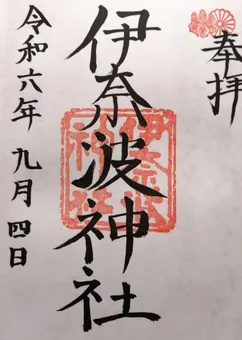 奉拝
伊奈波神社
令和六年九月四日
伊奈波
神社